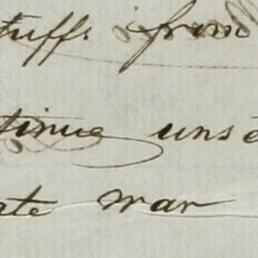 tuffs from
tinue unse
ate war